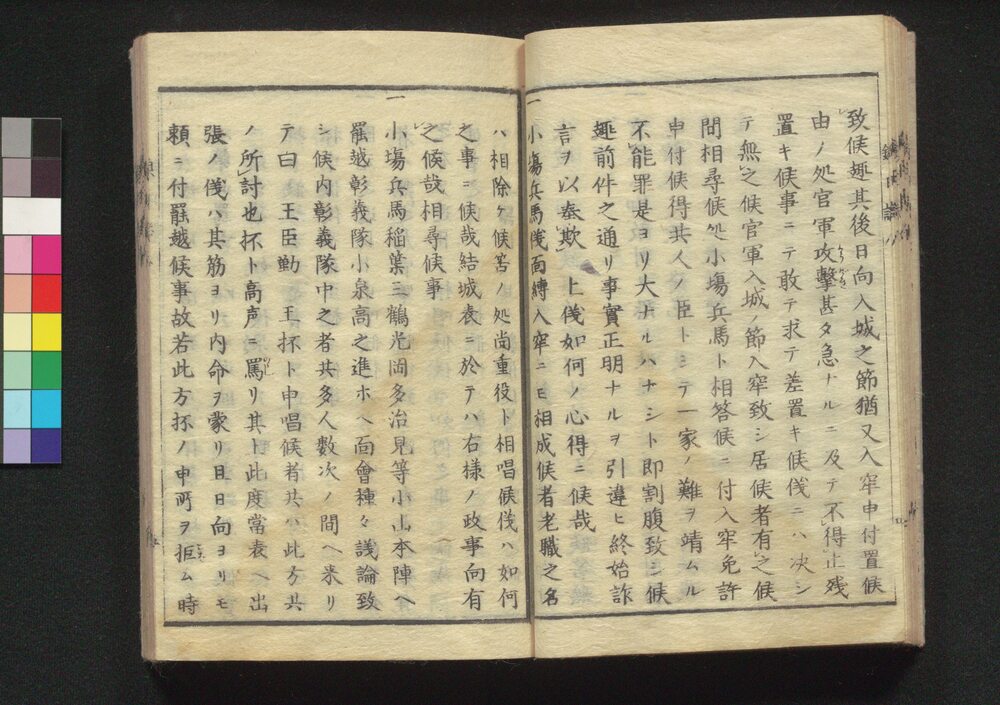 致候趣其後日向入城之節猶又入牢申付置候
由ノ処官軍攻撃甚タ急ナルニ及テ不得止残
置キ候事ニテ敢テ求テ差置キ候儀ニハ決シ
テ無之候官軍入城ノ節入牢致シ居候者有之候
間相尋候処小塲兵馬ト相答候ニ付入牢免許
申付候得共人ノ臣トシテ一家ノ難ヲ靖ムル
不能罪是ヨリ大ナルハナシト即割腹致シ候
趣前件之通リ事實正明ナルヲ引違ヒ終始詐
言ヲ以奉欺上儀如何ノ心得ニ候哉
一
小塲兵馬儀面縛入牢ニモ相成候者老職之名
ハ相除ケ候筈ノ処尚重役ト相唱候儀ハ如何
之事ニ候哉結城表ニ於テハ右様ノ政事向有
之候哉相尋候事
一
小塲兵馬稲葉三鶴光岡多治見等小山本陣ヘ
罷越彰義隊小泉高之進ホヘ面會種々議論致
シ候内彰義隊中之者共多人数次ノ間ヘ来リ
テ曰王臣勤王抔ト申唱候者共ハ此方共
ノ所討也抔ト高声ニ罵リ其上此度當表ヘ出
張ノ儀ハ其筋ヨリ内命ヲ蒙リ且日向ヨリモ
頼ニ付罷越候事故若此方抔ノ申所ヲ拒ム時